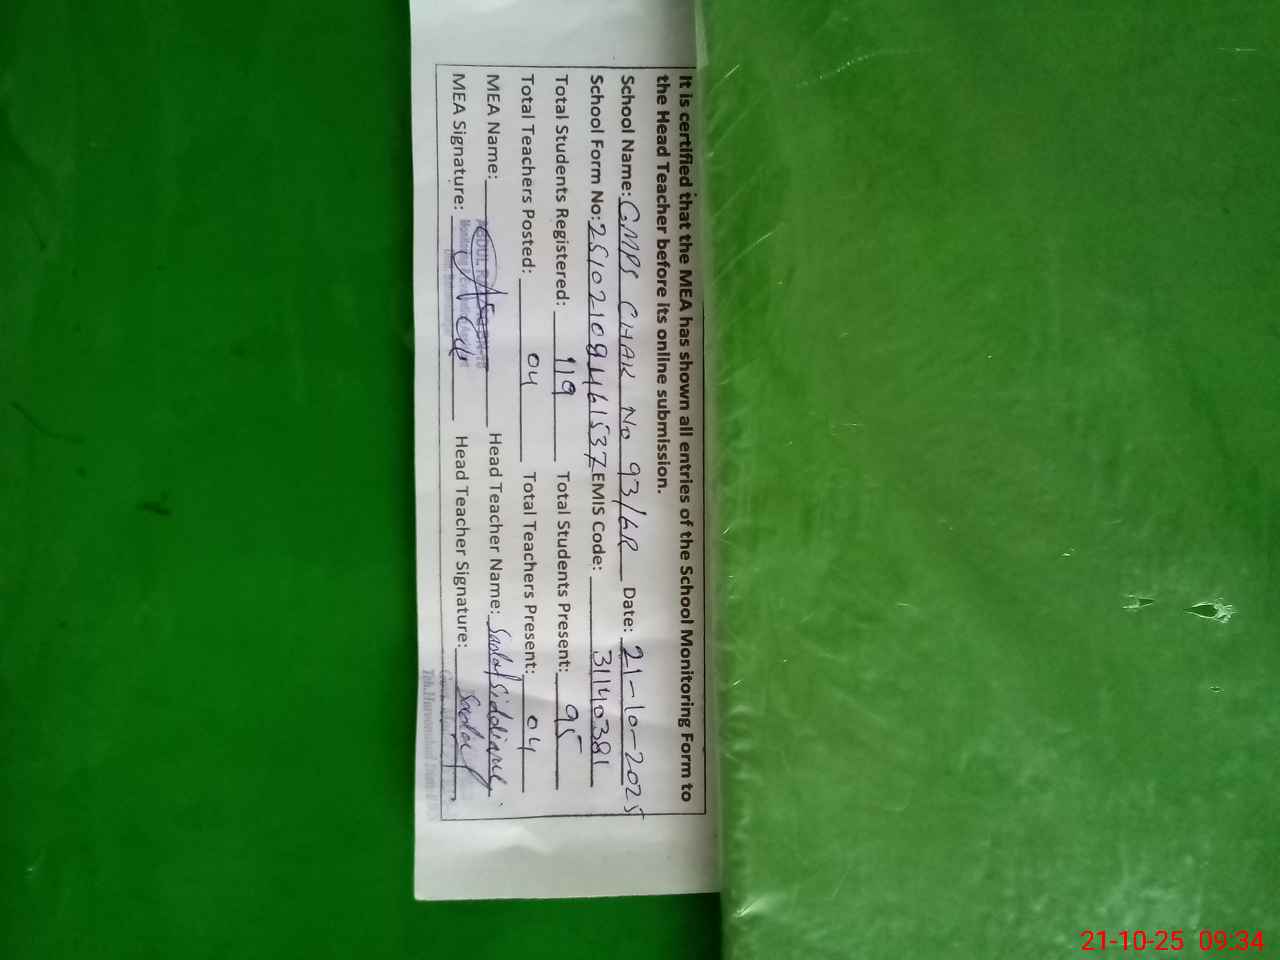 It is certified that the MEA has shown all entries of the School Monitoring Form to
the Head Teacher before its online submission.
School Name: GMPS CHAK No 93/6R Date: 21-10-2025
School Form No: 25102108461537 EMIS Code: 31140381
Total Students Registered: 119 Total Students Present: 95
Total Teachers Posted: 04 Total Teachers Present: 04
MEA Name: ABDUL Head Teacher Name: Sadaf
MEA Signature: Head Teacher Signature: Sadaf
21-10-25 09:34